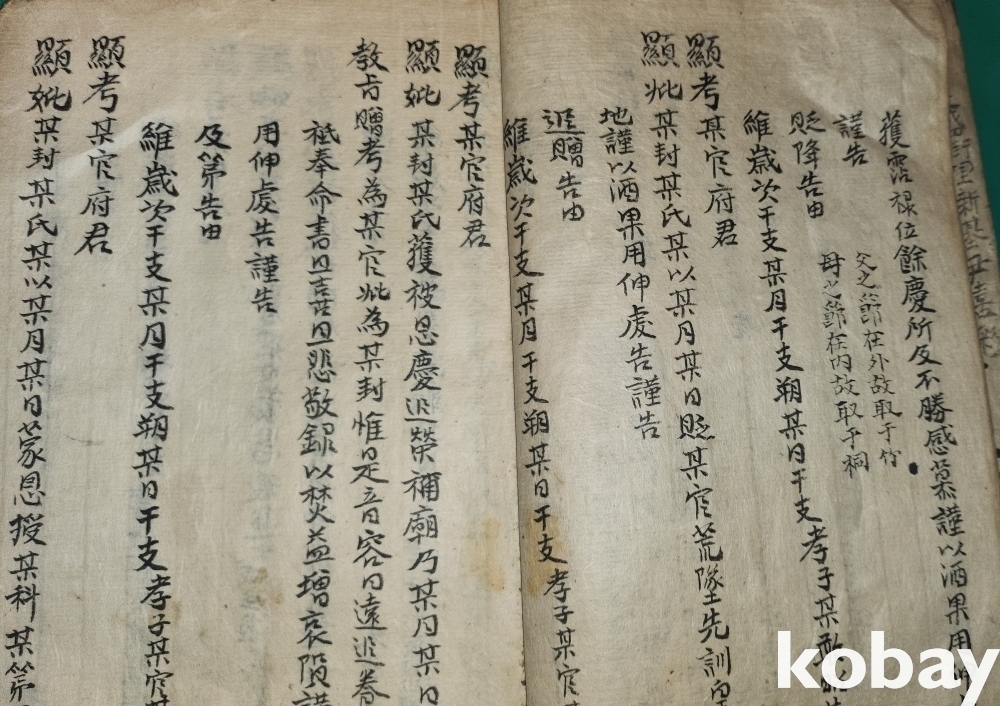 獲霑祿位餘慶所及不勝感慕謹以酒果用伸
謹告
父之節在外故取于竹
母之節在內故取于桐
貶降告由
維歲次干支某月干支朔某日干支孝子某敢昭
顯考某官府君
顯妣某封某氏某以某月某日貶某官荒墜先訓皇
地謹以酒果用伸虔告謹告
追贈告由
維歲次干支某月干支朔某日干支孝子某官
顯考某官府君
顯妣某封某氏獲被恩慶追榮禰廟乃某月某日
教旨贈考為某官妣為某封惟是音容日遠追養
祗奉命書且喜且悲敬錄以焚益增哀隕謹
用伸虔告謹告
及第告由
維歲次干支某月干支朔某日干支孝子某官某
顯考某官府君
顯妣某封某氏某以某月某日蒙恩授某科某第
kobay